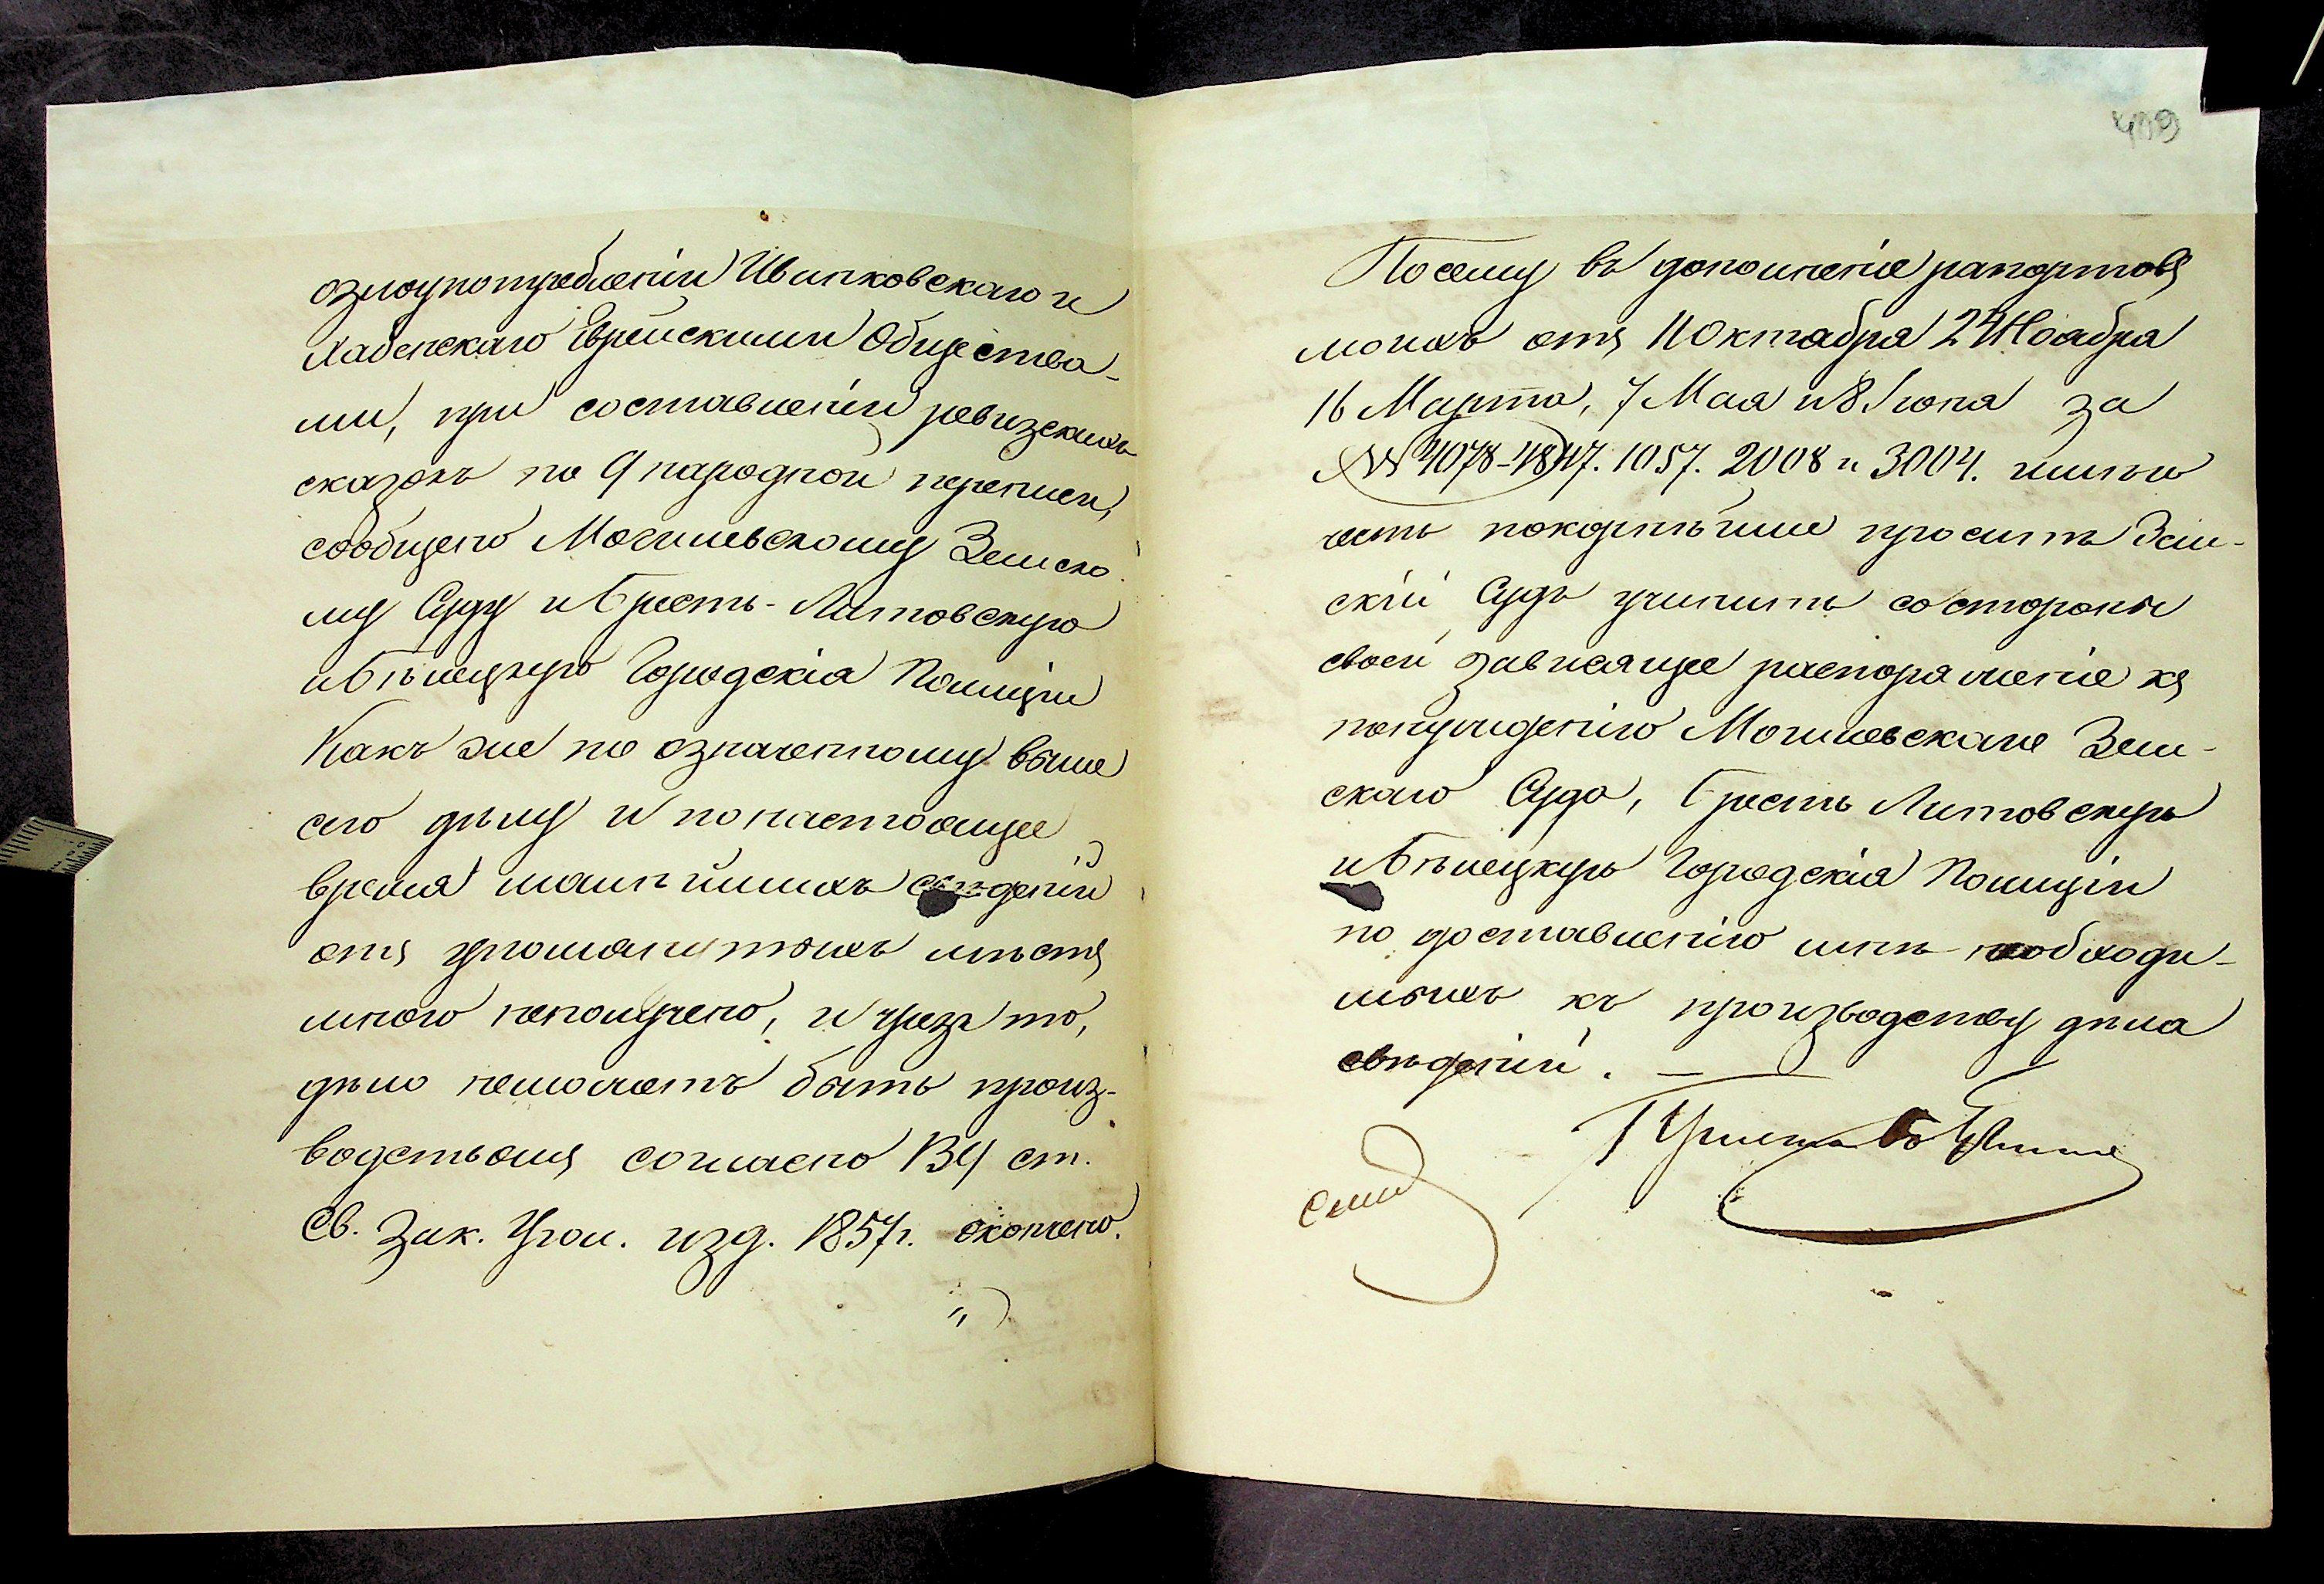 озлоупотребленіи Иванковскаго и
Хабенскаго Еврейскими Общества-
ми, при составленіи ревизскихъ
сказокъ по 9 народной переписи,
сообщено Могилевскому Земско-
му Суду и Брестъ-Литовскую
и Бѣлецкую Городскія Полиціи
Какъ же по означенному выше
сего дѣлу и по настоящее
время малѣйшихъ свѣденій
отъ упомянутыхъ мѣстъ
мною неполучено, и чрезъ то,
дѣло неможетъ быть произ-
водствомъ согласно 134 ст.
Св. Зак. Угол. изд. 1857 г. окончено.
499
Посему въ дополненіе рапортовъ
моихъ отъ 11 Октабра 24 Ноабра
16 Марта, 7 Маа и 8 Іюна за
№№ 4078-4847. 1057. 2008 и 3004. имѣю
честь покорнѣйше проситъ Зем-
скій Судъ учинить со стороны
своей зависящее распоряженіе къ
понужденію Могилевскаго Зем-
скаго Суда, Брестъ Литовскую
и Бѣлецкую Городскія Полиціи
по доставленію мнѣ необходи-
мыхъ къ производству дѣла
свѣденій. —